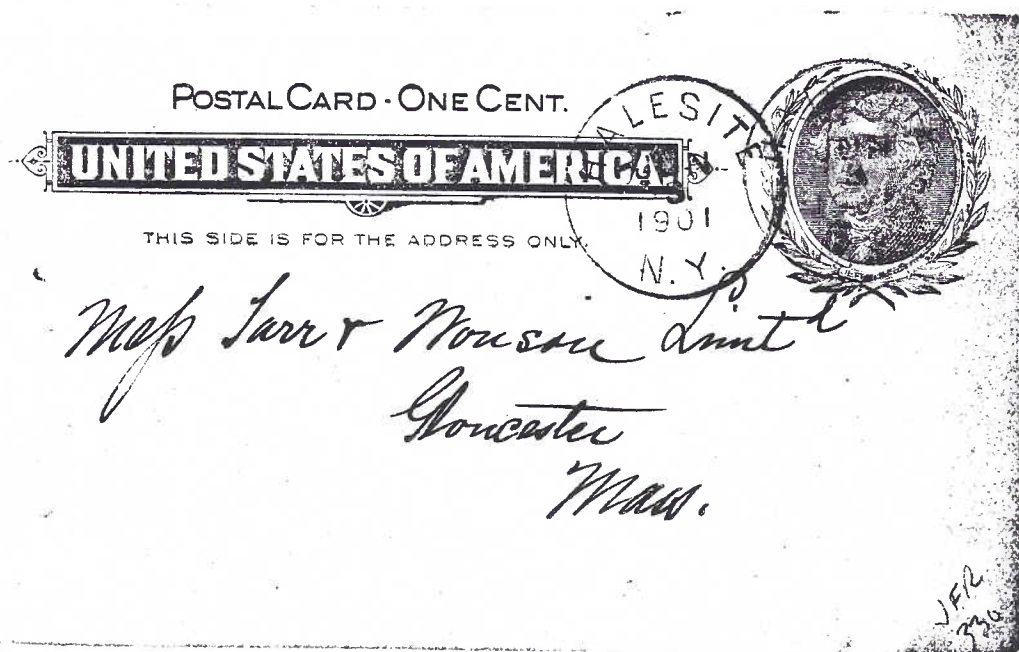 POSTAL CARD · ONE CENT.
UNITED STATES OF AMERICA.
THIS SIDE IS FOR THE ADDRESS ONLY.
HALESITE
1901
N.Y.
Mess Tarr & Wonson Limtd
Gloucester
Mass.